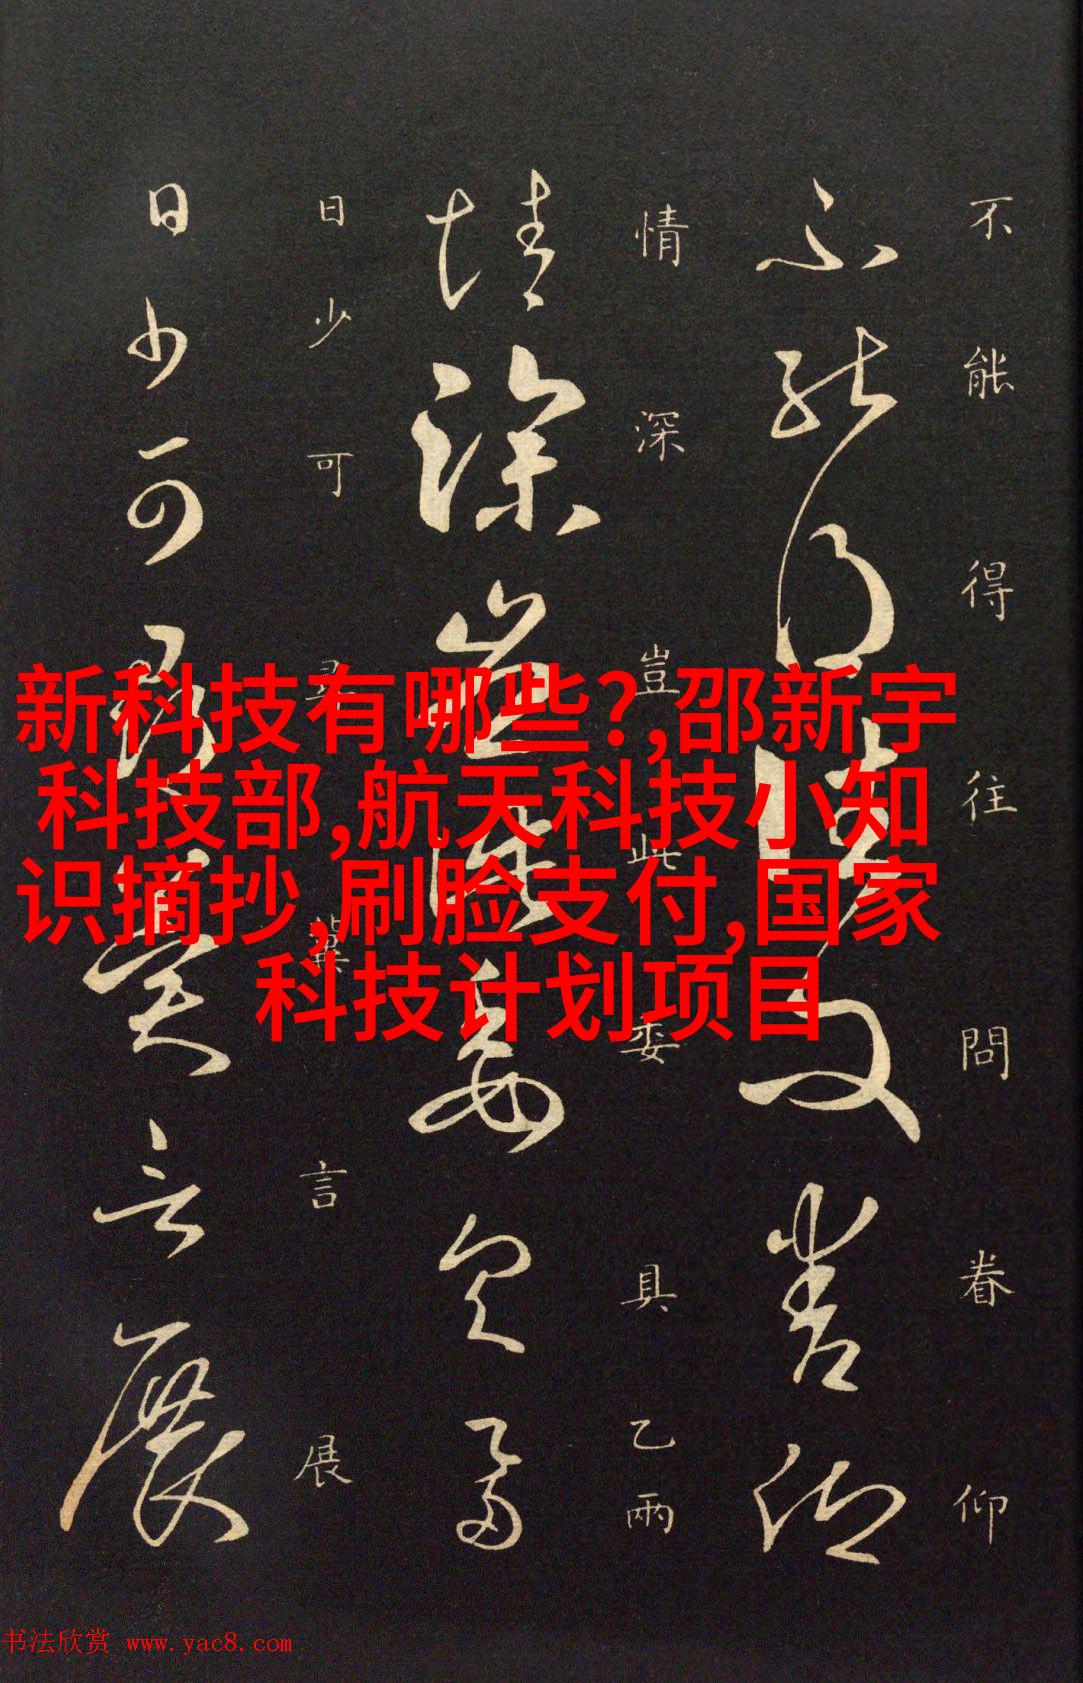 不能得往問眷仰
情深豈此委具乙兩
日少可尋冀言展
新科技有哪些?,邵新宇
科技部,航天科技小知
识摘抄,刷脸支付,国家
科技计划项目
书法欣赏 www.yac8.com